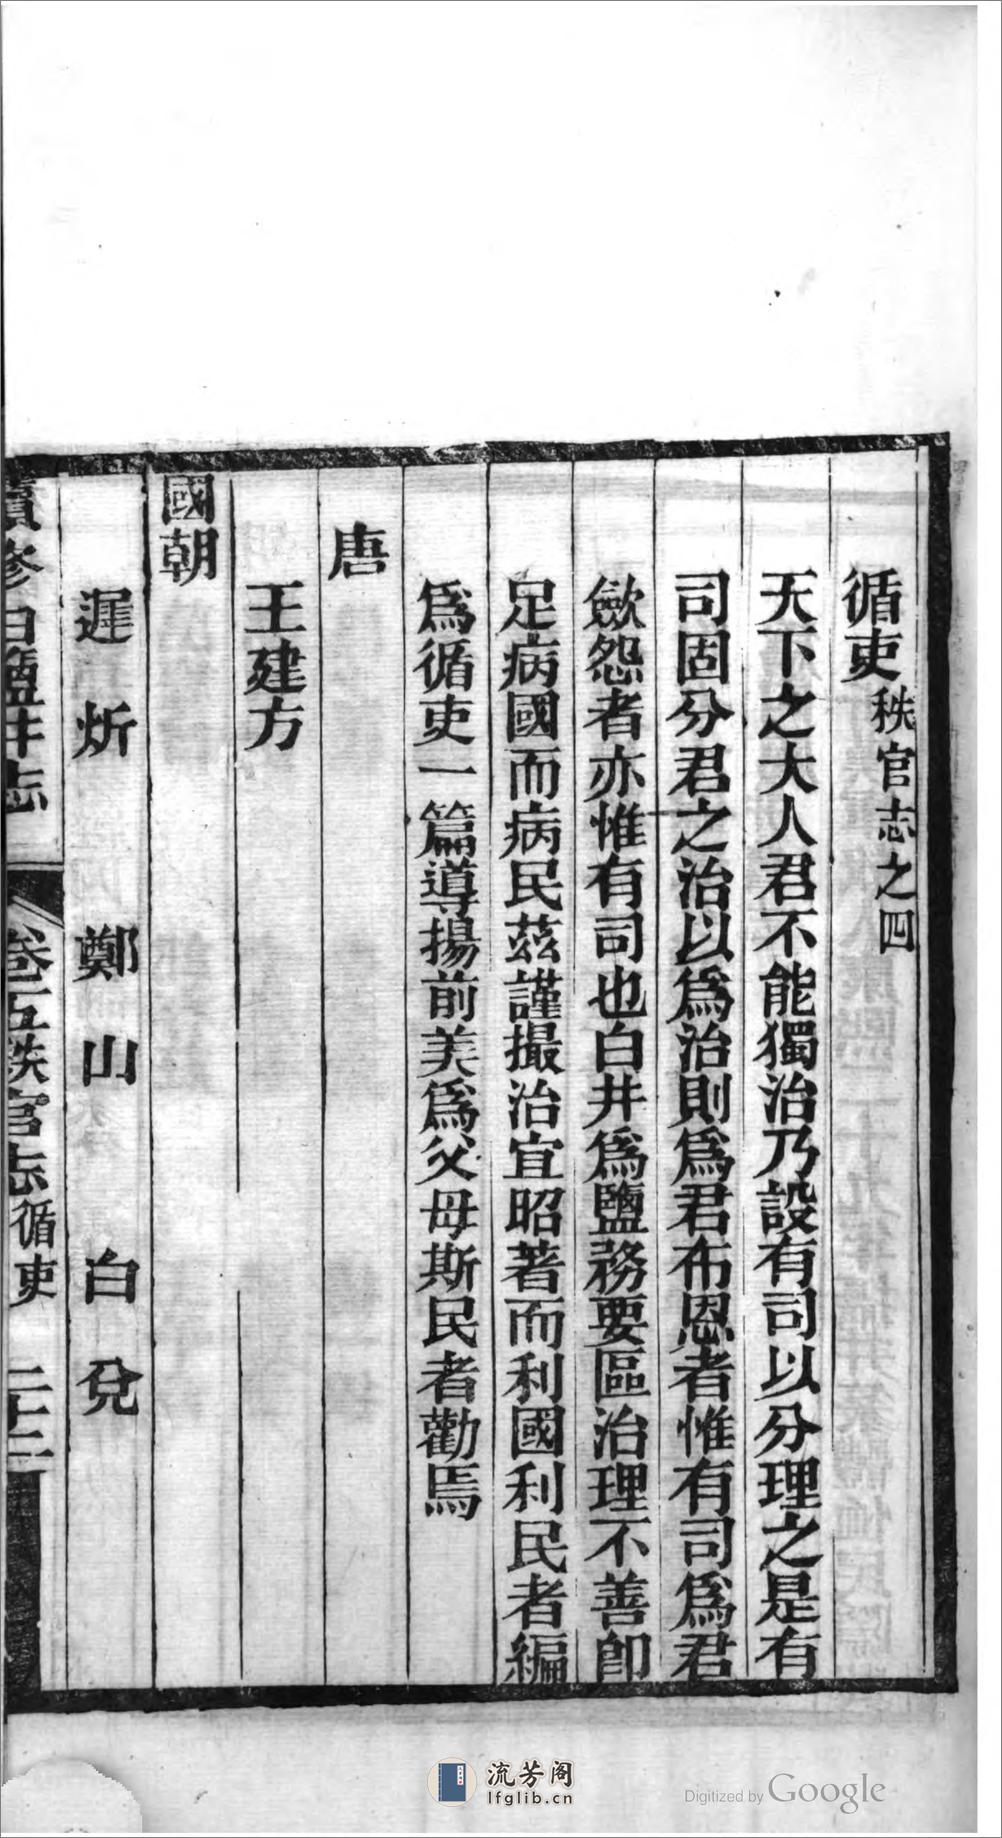 循吏 秩官志之四
天下之大人君不能獨治乃設有司以分理之是有
司固分君之治以爲治則爲君布恩者惟有司爲君
歛怨者亦惟有司也白井爲鹽務要區治理不善卽
足病國而病民茲謹撮治宜昭著而利國利民者編
爲循吏一篇導揚前美爲父母斯民者勸焉
唐
王建方
國朝
遲炘 鄭山 白兌
續修白鹽井志 卷五秩官志循吏 二十二
流芳阁
lfglib.cn
Digitized by Google